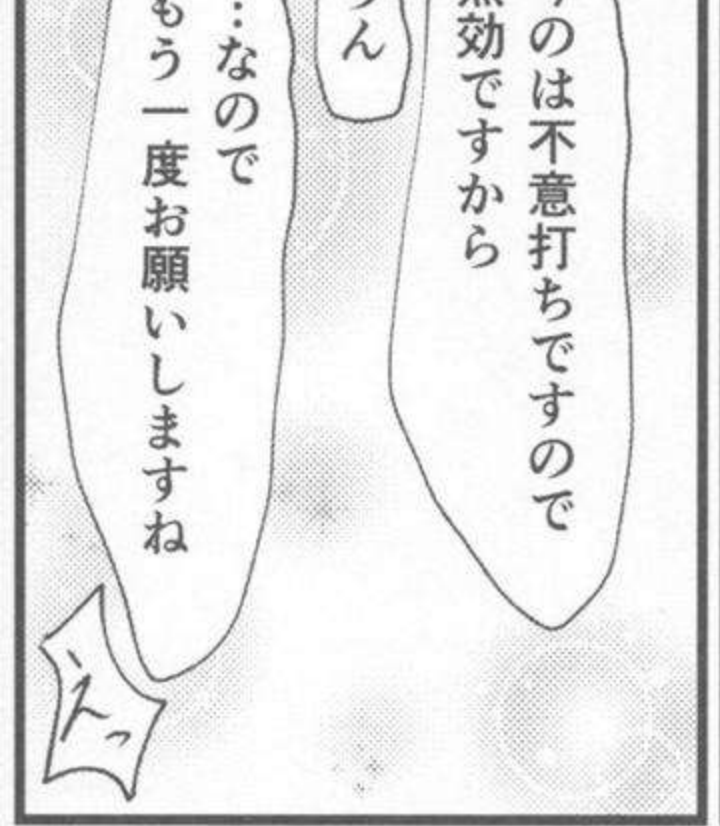 のは不意打ちですので
無効ですから
うん
…なので
もう一度お願いしますね
えっ